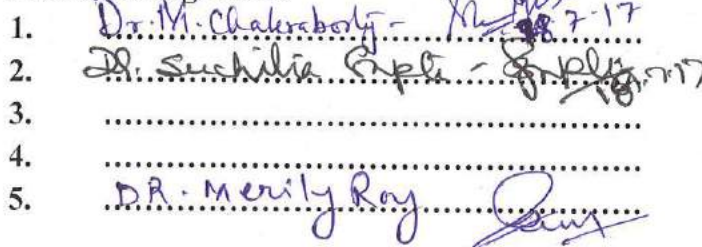 1. Dr. M. Chakraborty - 18.7.17
2. Dr. Suchitra Gupta - 18.7.17
3.
4.
5. DR. Merily Roy